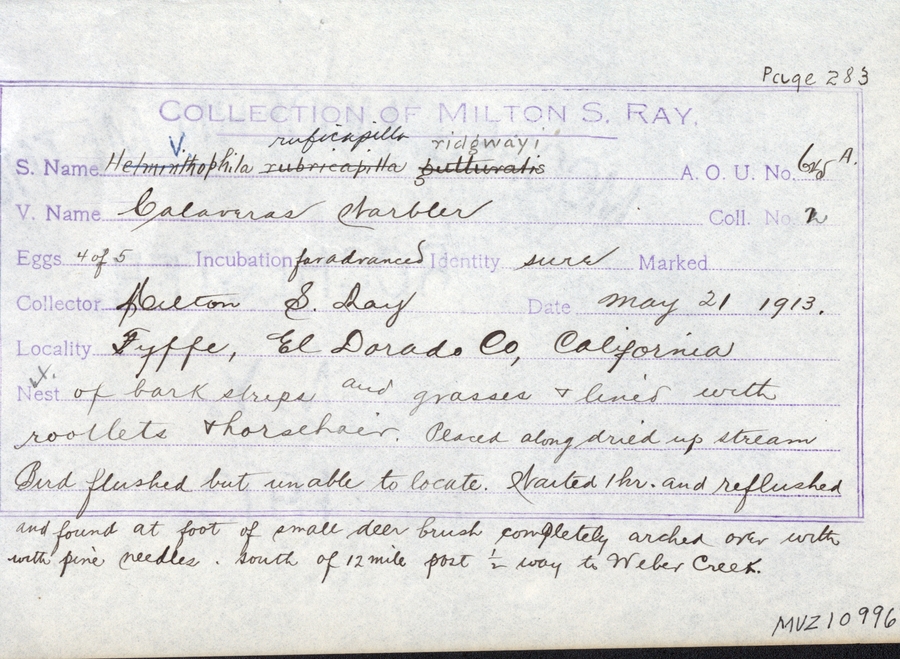 Page 283
COLLECTION OF MILTON S. RAY.
V. ruficapilla ridgwayi
S. Name Helminthophila rubricapilla gutturalis A. O. U. No. 645 A.
V. Name Calaveras Warbler Coll. No. 2
Eggs 4 of 5 Incubation far advanced Identity sure Marked
Collector Milton S. Ray Date May 21 1913.
Locality Fyffe, El Dorado Co, California
Nest of bark strips and grasses & lined with
rootlets & horsehair. Placed along dried up stream
Bird flushed but unable to locate. Waited 1 hr. and reflushed
and found at foot of small deer brush completely arched over with
with pine needles. South of 12 mile post ½ way to Weber Creek.
MVZ 10996